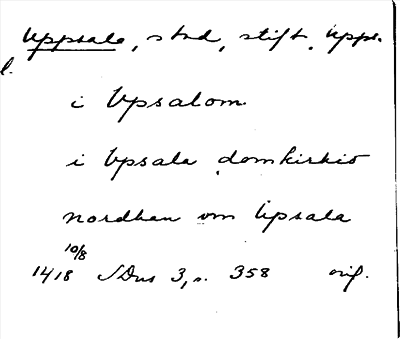 Uppsala, stad, stift, Upps.
l.
i Vpsalom
i Vpsala domkirkio
nordhan om Vpsala
10/8
1418 SDns 3, s. 358 orig.